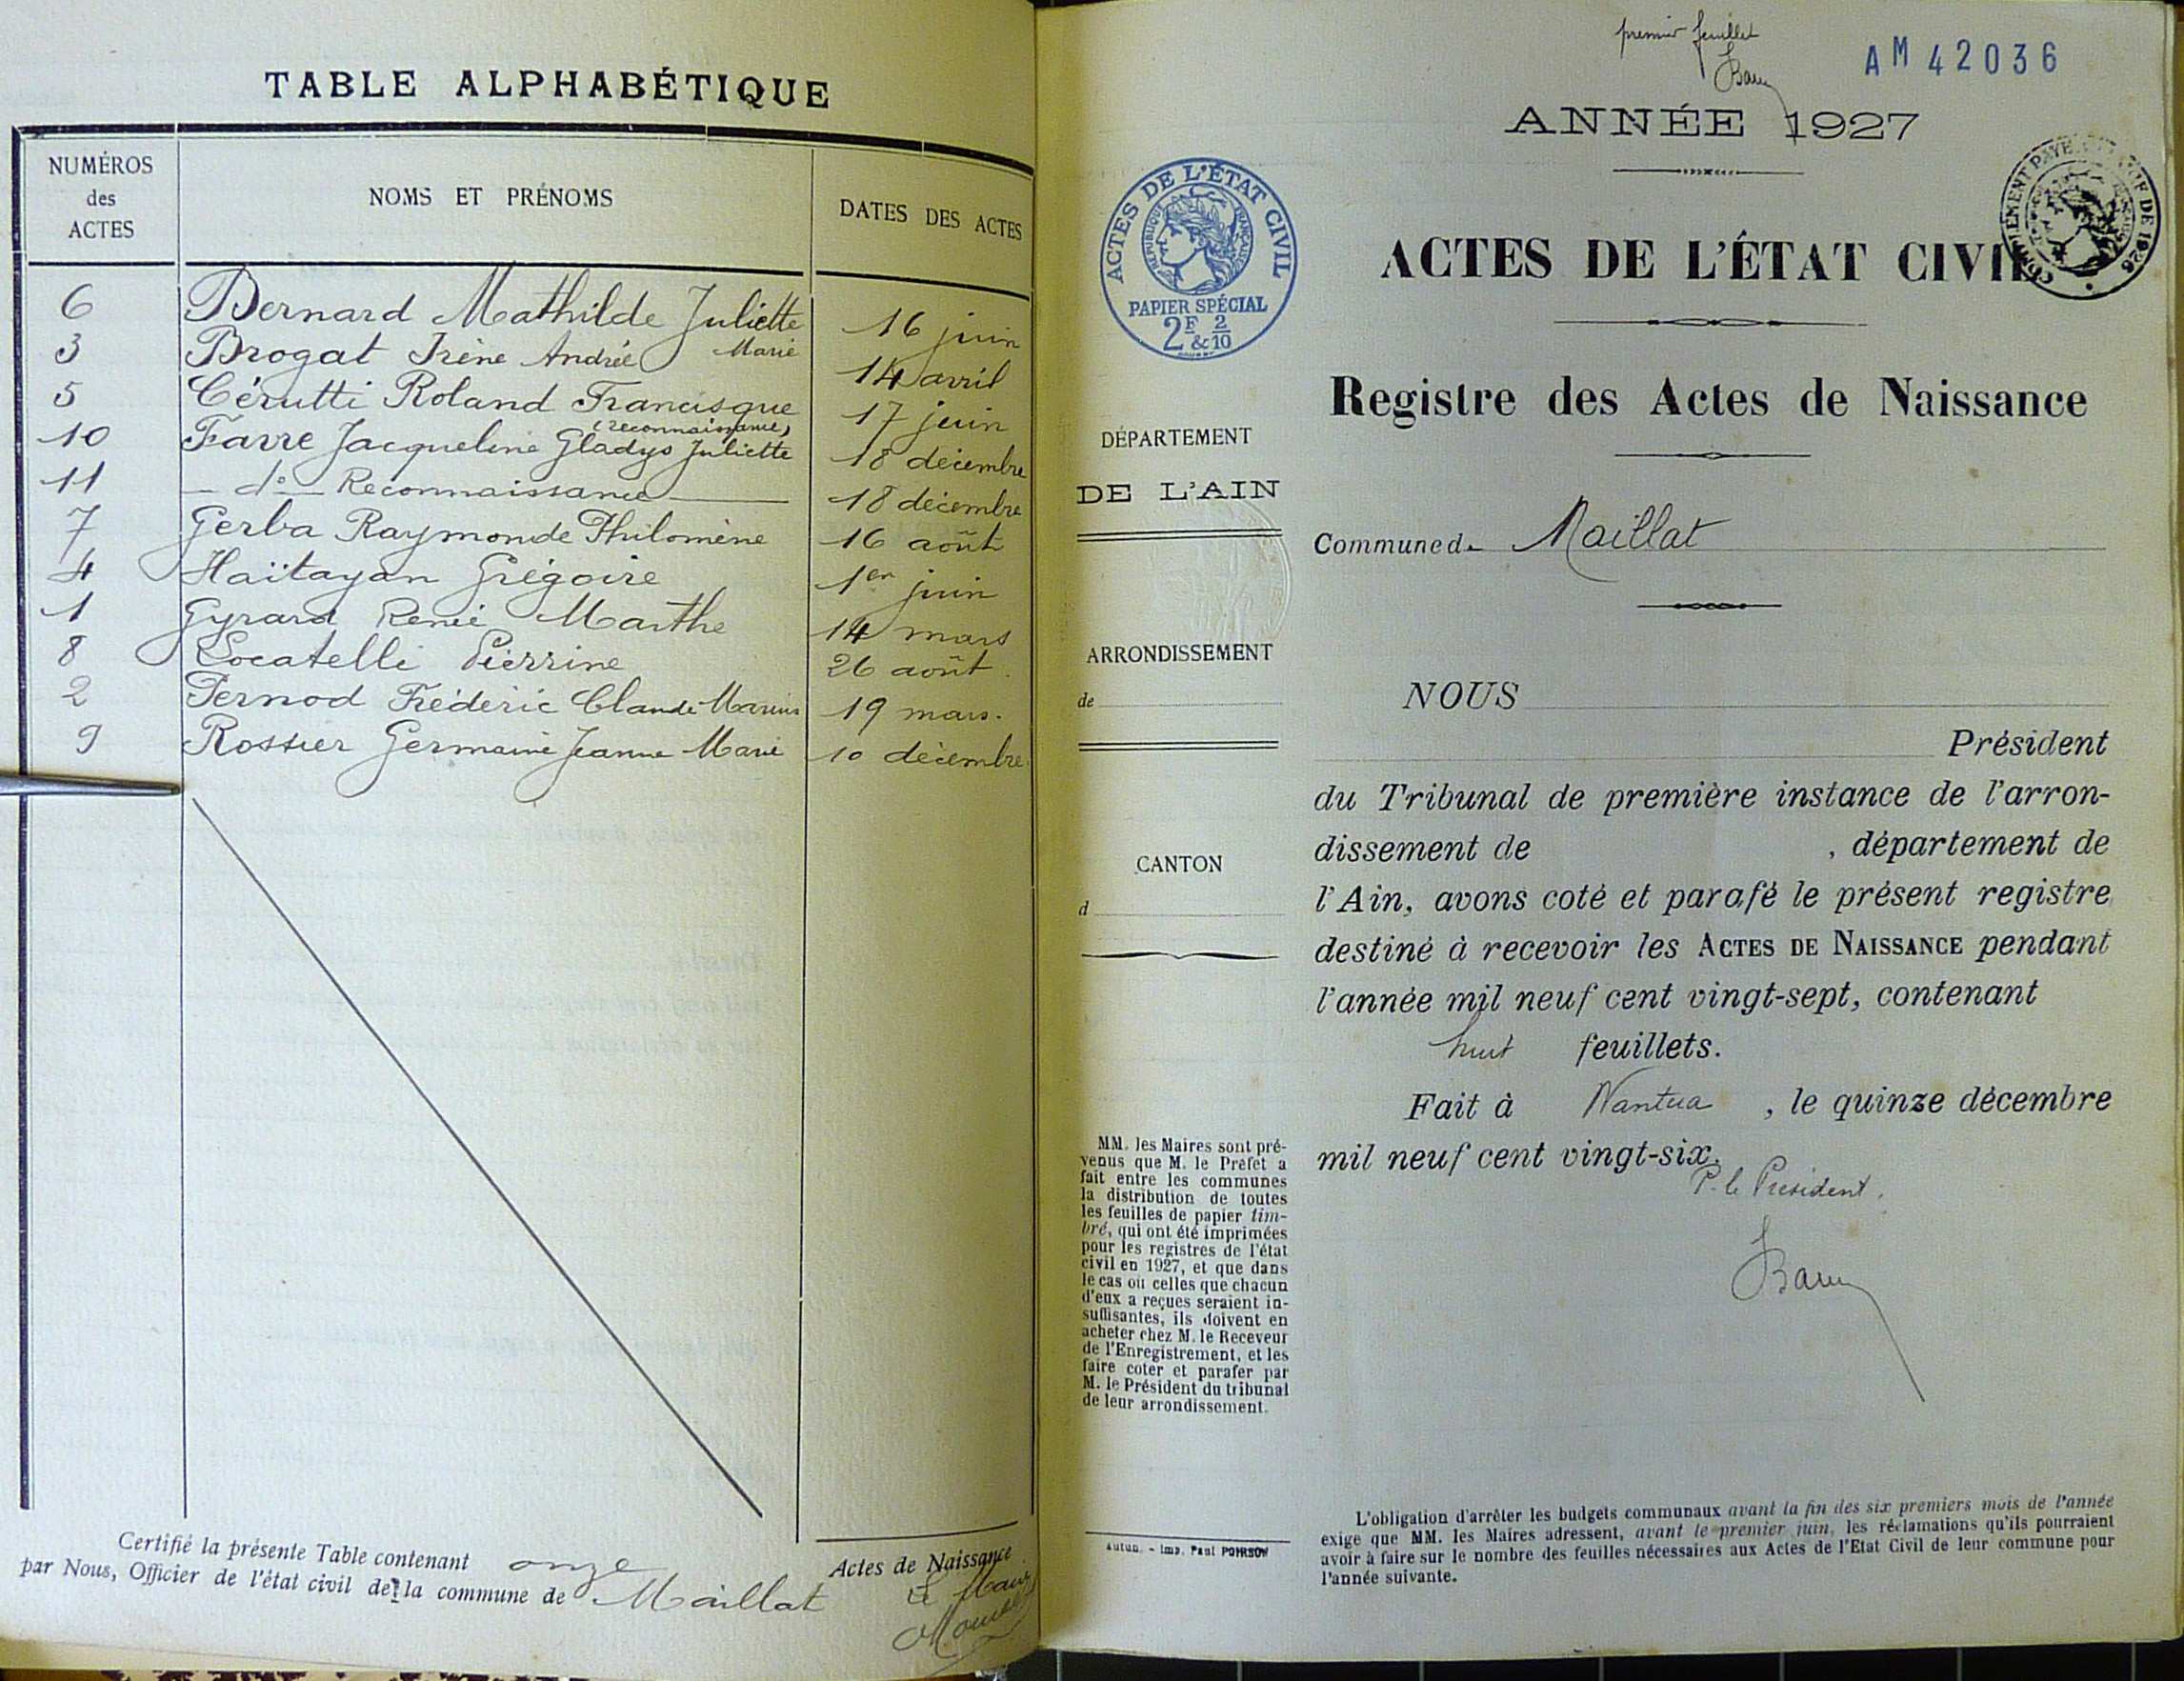 TABLE ALPHABÉTIQUE
NUMÉROS des ACTES
NOMS ET PRÉNOMS
DATES DES ACTES
6 Bernard Mathilde Juliette 16 juin
3 Brogat Irène Andrée Marie 14 avril
5 Cérutti Roland Francisque 17 juin
(reconnaissance)
10 Favre Jacqueline Gladys Juliette 18 décembre
11 - do - Reconnaissance 18 décembre
7 Gerba Raymonde Philomène 16 août
4 Haïtayan Grégoire 1er juin
1 Gyrard René Marthe 14 mars
8 Locatelli Pierrine 26 août.
2 Pernod Frédéric Claude Marius 19 mars.
9 Rossier Germaine Jeanne Marie 10 décembre
Certifié la présente Table contenant onze Actes de Naissance
par Nous, Officier de l'état civil de la commune de Maillat
Le Maire
premier feuillet
AM 42036
ANNÉE 1927
ACTES DE L'ÉTAT CIVIL
ACTES DE L'ÉTAT CIVIL
RÉPUBLIQUE FRANÇAISE
PAPIER SPÉCIAL
2F & 2/10
COMPLÉMENT PAYÉ DE 1926
Registre des Actes de Naissance
DÉPARTEMENT
DE L'AIN
Commune de Maillat
ARRONDISSEMENT
de
CANTON
d
NOUS
Président
du Tribunal de première instance de l'arron-
dissement de , département de
l'Ain, avons coté et parafé le présent registre
destiné à recevoir les ACTES DE NAISSANCE pendant
l'année mil neuf cent vingt-sept, contenant
huit feuillets.
Fait à Nantua, le quinze décembre
mil neuf cent vingt-six.
P. le Président.
MM. les Maires sont pré-
venus que M. le Préfet a
fait entre les communes
la distribution de toutes
les feuilles de papier tim-
bré, qui ont été imprimées
pour les registres de l'état
civil en 1927, et que dans
le cas où celles que chacun
d'eux a reçues seraient in-
suffisantes, ils doivent en
acheter chez M. le Receveur
de l'Enregistrement, et les
faire coter et parafer par
M. le Président du tribunal
de leur arrondissement.
Autun. - Imp. Paul POIRSON
L'obligation d'arrêter les budgets communaux avant la fin des six premiers mois de l'année
exige que MM. les Maires adressent, avant le premier juin, les réclamations qu'ils pourraient
avoir à faire sur le nombre des feuilles nécessaires aux Actes de l'Etat Civil de leur commune pour
l'année suivante.